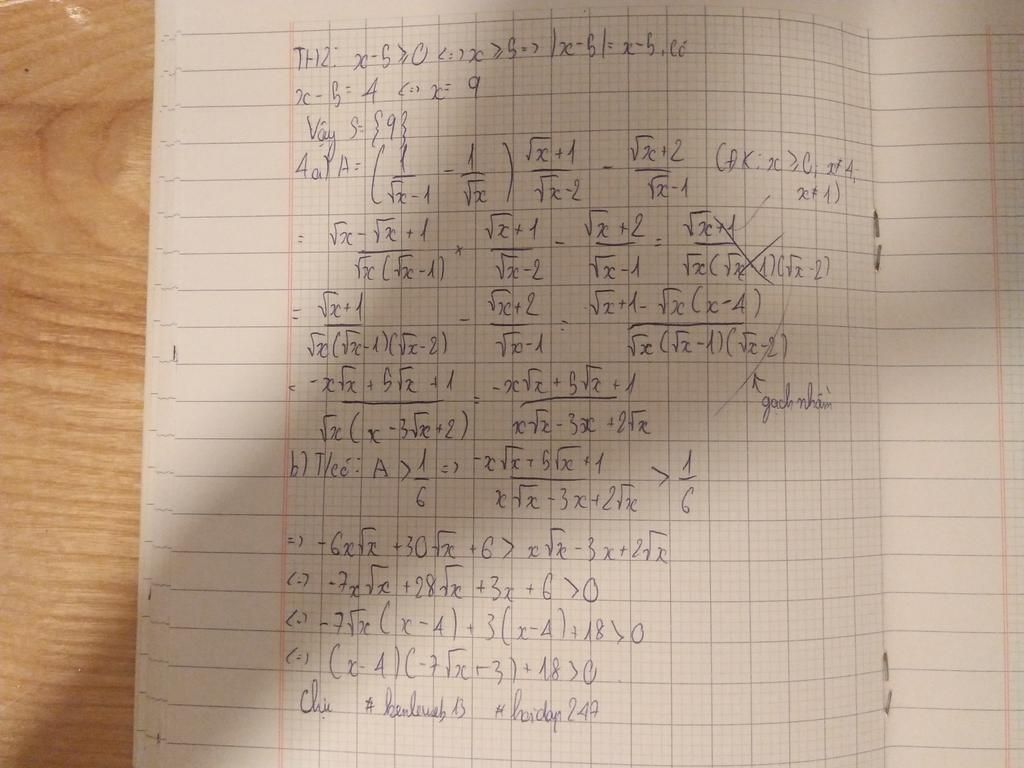 TH2: x-5 ≥ 0 <=> x ≥ 5 => |x-5| = x-5, có
x-5 = 4 <=> x = 9
Vậy S = {9}
4a) A = (1/(√x-1) - 1/√x) (√x+1)/(√x-2) - (√x+2)/(√x-1) (ĐK: x ≥ 0, x≠4, x≠1)
= (√x-√x+1)/(√x(√x-1)) × (√x+1)/(√x-2) - (√x+2)/(√x-1) = (√x+1)/(√x(√x-1)(√x-2))
= (√x+1)/(√x(√x-1)(√x-2)) - (√x+2)/(√x-1) = (√x+1-√x(x-4))/(√x(√x-1)(√x-2))
= (-x√x+5√x+1)/(√x(x-3√x+2)) = (-x√x+5√x+1)/(x√x-3x+2√x)
gạch nhầm
b) T/có: A > 1/6 => (-x√x+5√x+1)/(x√x-3x+2√x) > 1/6
=> -6x√x+30√x+6 > x√x-3x+2√x
<=> -7x√x+28√x+3x+6 > 0
<=> -7√x(x-4)+3(x-4)+18 > 0
<=> (x-4)(-7√x+3)+18 > 0
Chịu # # hoidap247